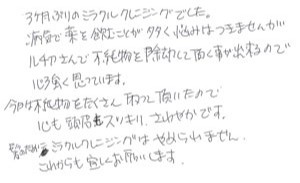 3ヶ月ぶりのミラクルクレニジングでした。
病院で薬を飲むことが多く悩みはつきませんが
ルチアさんで不純物を除却して頂く事が出来るので
心強く思っています。
今日は不純物をたくさん取って頂いたので
心も頭店もスッキリ、さわやかです。
ミラクルクレニジングはやめられません。
これからも宜しくお願いします。